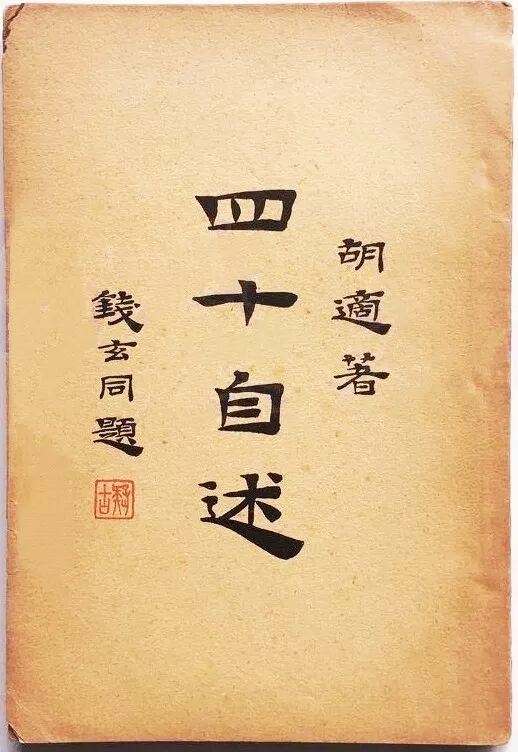 胡適著
四十自述
錢玄同題
疑古